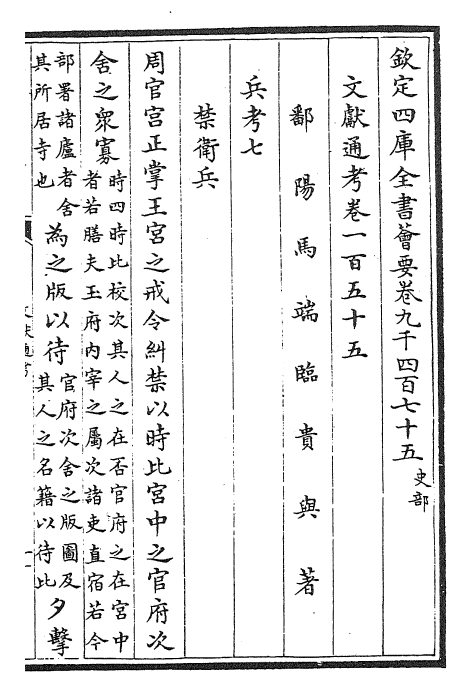 欽定四庫全書薈要卷九千四百七十五 史部
文獻通考卷一百五十五
鄱陽馬端臨貴與著
兵考七
禁衛兵
周官宮正掌王宮之戒令糾禁以時比宮中之官府次
舍之衆寡
時四時比校次其人之在否官府之在宮中
者若膳夫玉府內宰之屬次諸吏直宿若今
部署諸廬者舍
其所居寺也
為之版以待
官府次舍之版圖及
其人之名籍以待比
夕擊